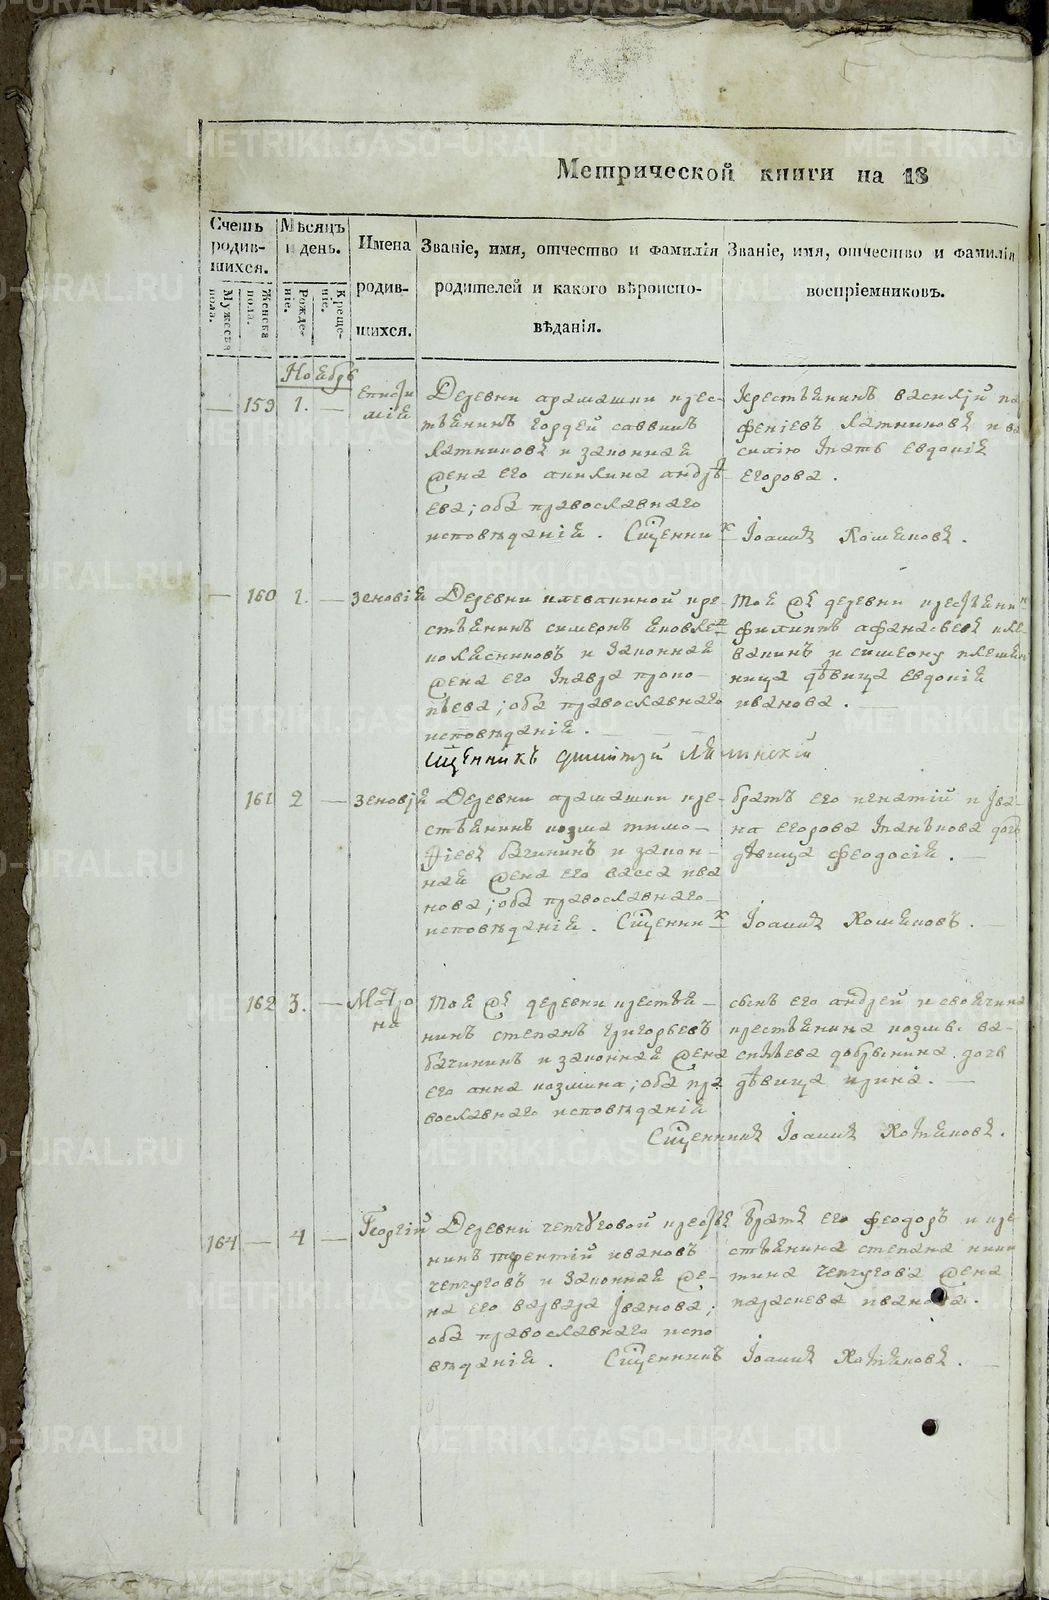 Метрической книги на 18
Счетъ родив-шихся.
Мужеска пола.
Женска пола.
Мѣсяцъ и день.
Рожде-ніе.
Креще-ніе.
Имена родив-шихся.
Званіе, имя, отчество и фамилія родителей и какого вѣроиспо-вѣданія.
Званіе, имя, отчество и фамилія воспріемниковъ.
Ноябрь
— 159 1. —
Епистимія
Деревни арамашки крес-
тьянинъ гордей саввинъ
Латниковъ и законная
жена его акилина андрѣ-
ева; оба православнаго
исповѣданія. Сщенникъ
Крестьянинъ василій пар
феніевъ Латниковъ и ва
силію Ипать Евдокія
Егорова.
Іоаннъ Хотяновъ.
— 160 1. —
зеновія
Деревни клевакиной кре-
стьянинъ симеонъ яковле
колясниковъ и Законная
жена его Павла проко-
пьева; оба православнаго
исповѣданія.
Тоя же деревни крестьянин
филиппъ афанасьевъ кле-
вакинъ и симеону племян
ница дѣвица Евдокія
иванова.
Сщенникъ Димитрій
161 2 —
зеновія
Деревни арамашки кре-
стьянинъ козма тимо-
фіевъ бачининъ и закон-
ная жена его васса ива
нова; оба православнаго
исповѣданія. Сщенникъ
братъ его игнатій и Ива-
на егорова дочь
дѣвица феодосія.
Іоаннъ Хотяновъ.
162 3. —
Матрона
Тоя же деревни крестья-
нинъ степанъ григорьевъ
бачининъ и законная жена
его анна козмина; оба пра
вославнаго исповѣданія
сынъ его андрей и своячина
крестьянина козмы ва-
сильева добрынина дочь
дѣвица ирина.
Сщенникъ Іоаннъ Хотяновъ.
164 — 4 —
Георгій
Деревни чепчуговой крестья
нинъ терентій ивановъ
чепчуговъ и Законная же-
на его варвара Іванова;
оба православнаго испо
вѣданія. Сщенникъ
братъ его феодоръ и кре
стьянина степана ники
тина чепчугова жена
параскева иванова.
Іоаннъ Хотяновъ.
METRIKI.GASO-URAL.RU